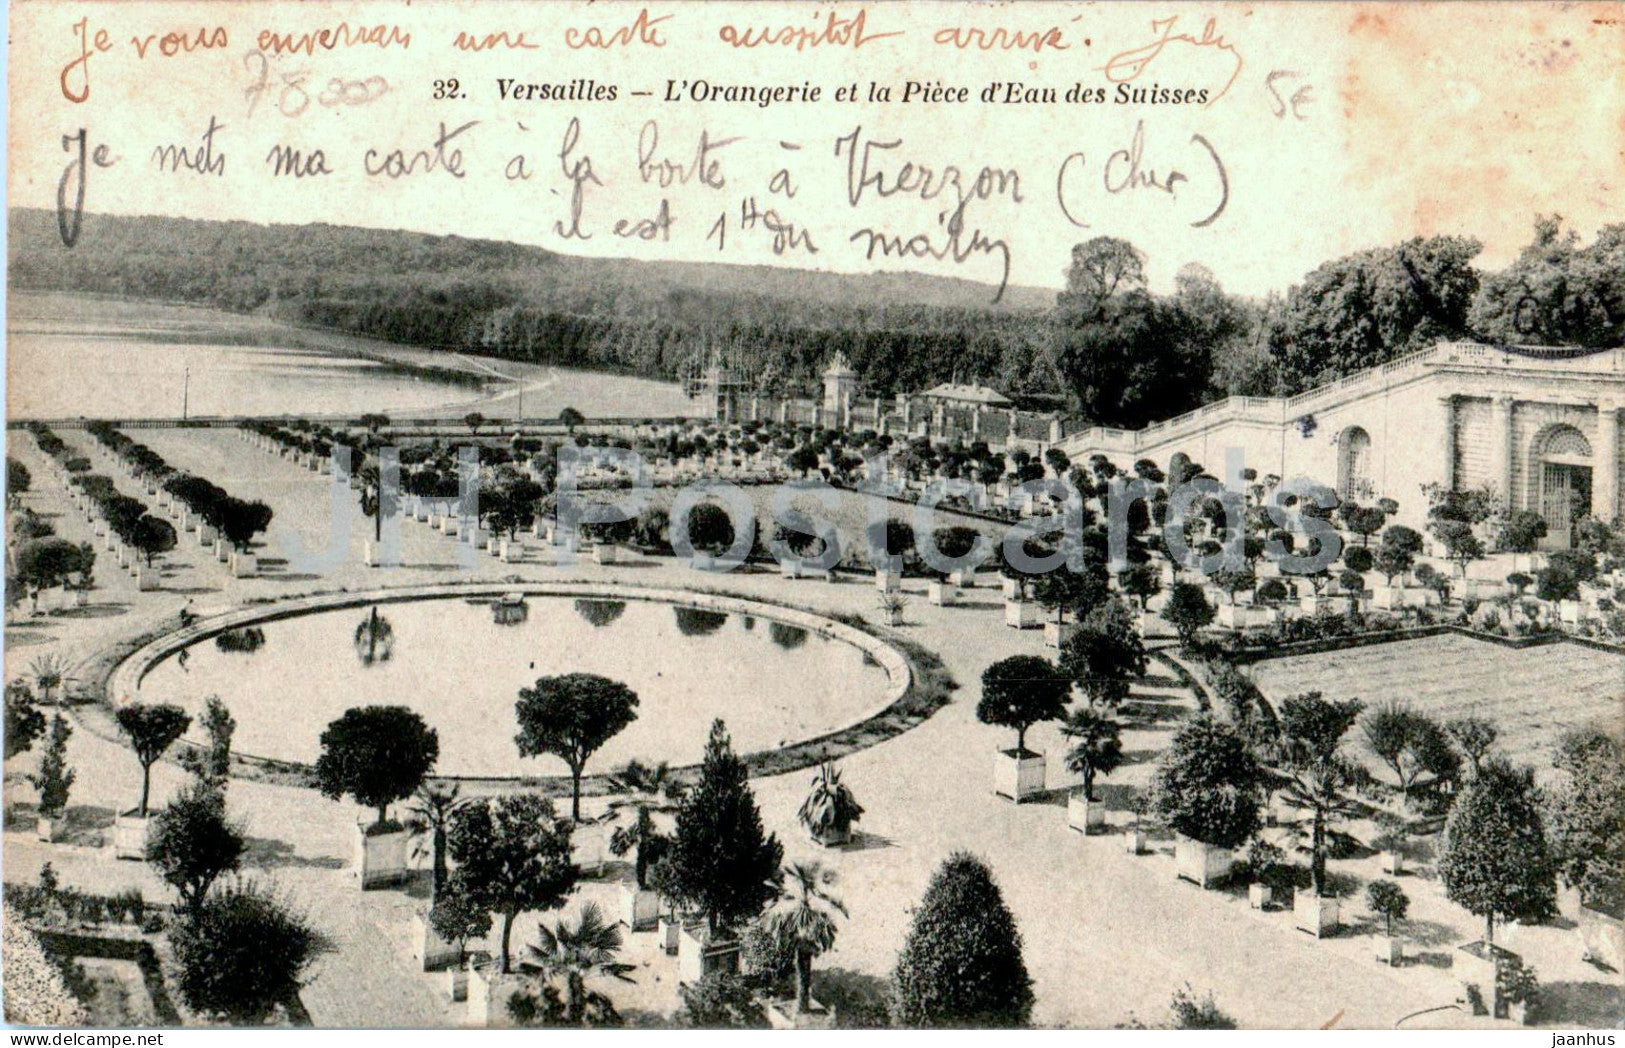 Je vous enverrais une carte aussitot arrivé. July
78000
32. Versailles — L'Orangerie et la Pièce d'Eau des Suisses
5€
Je mets ma carte à la boite à Vierzon (Cher)
il est 1H du matin
JH Postcards
delcampe.net
jaanhus